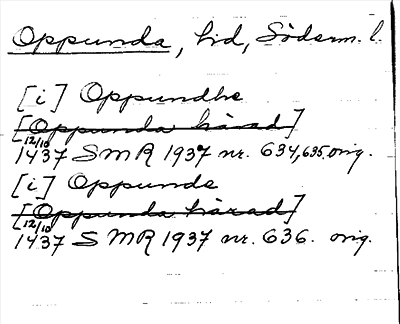 Oppunda, hd, Söderm. l.
[i] Oppundhe
[Oppunda härad]
12/10 1437 SMR 1937 nr. 634, 635, orig.
[i] Oppunde
[Oppunda härad]
12/10 1437 SMR 1937 nr. 636. orig.